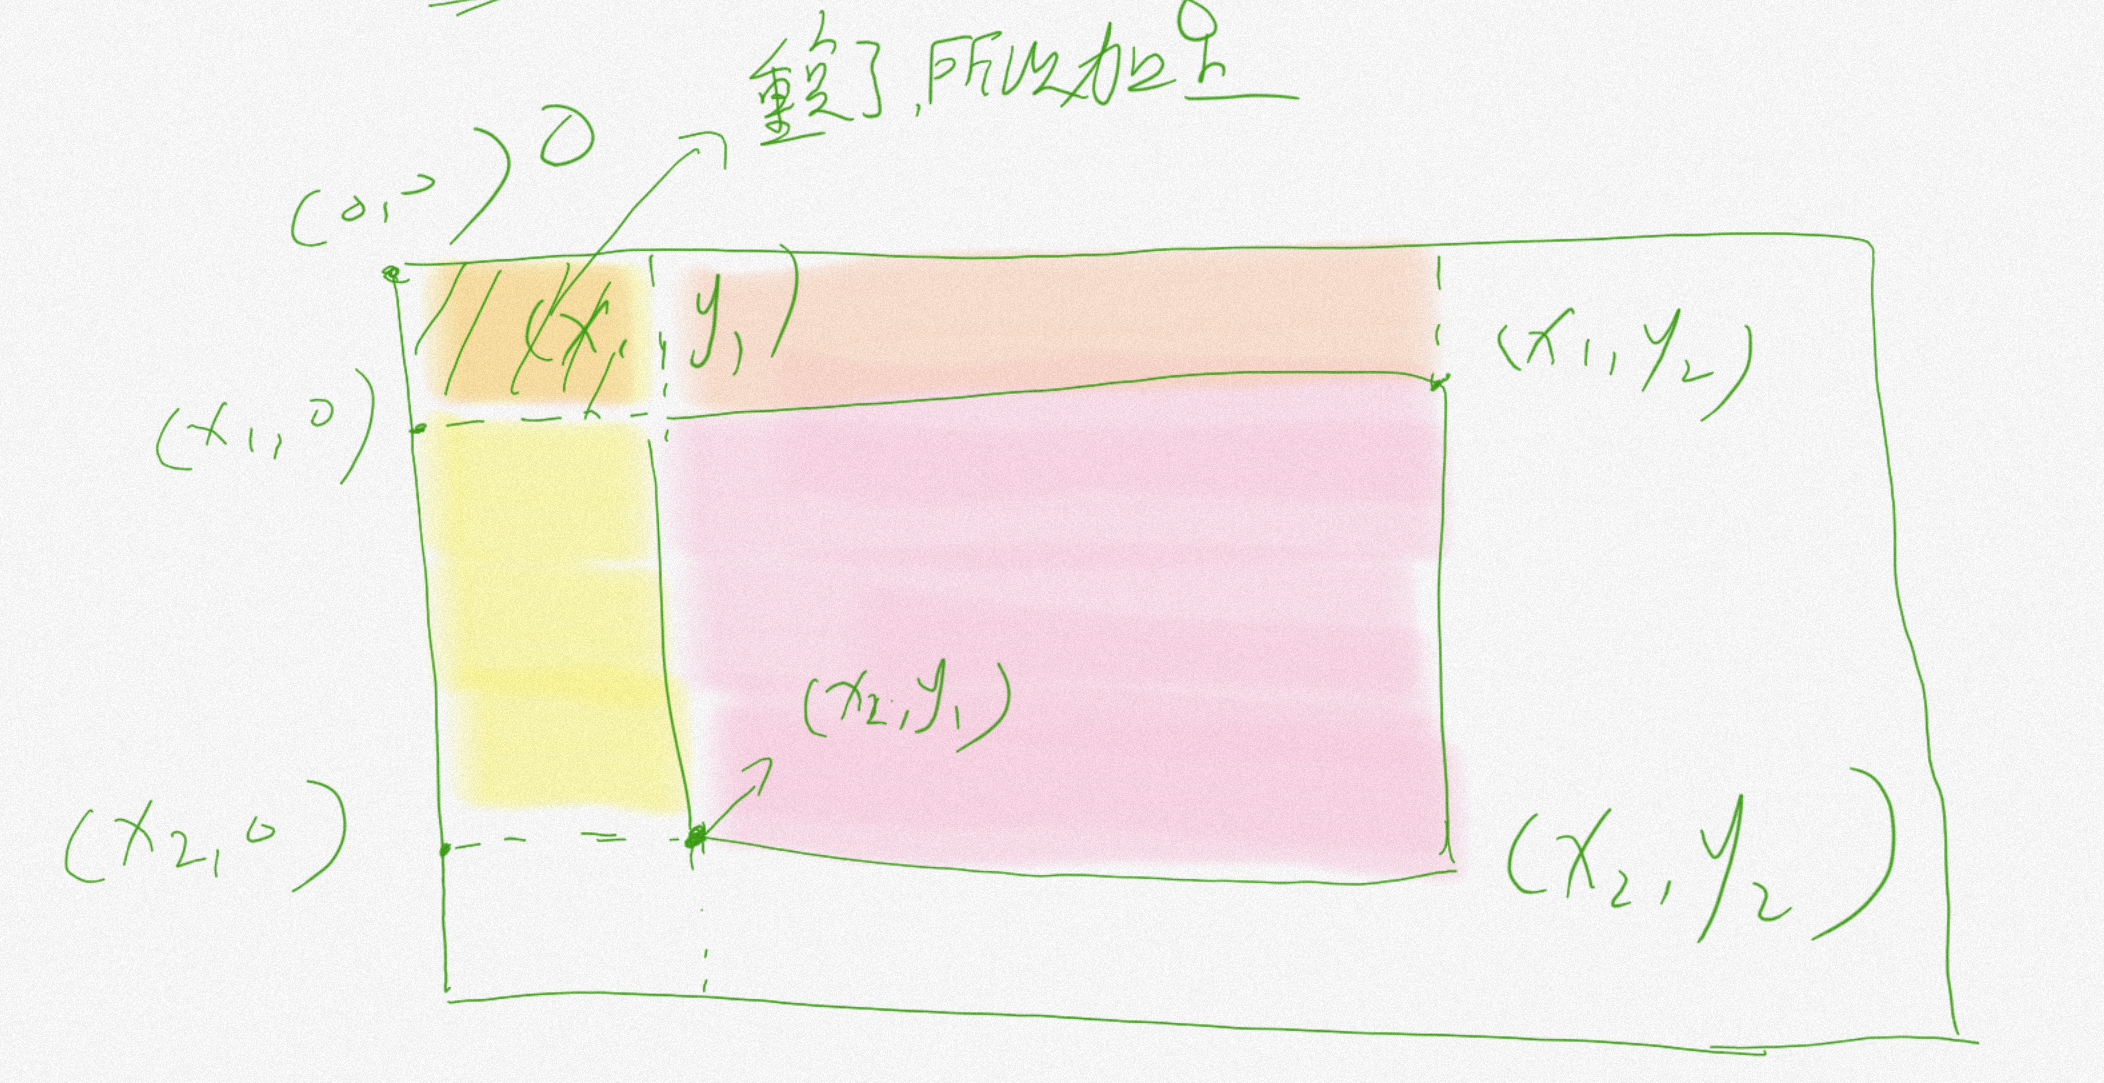 重复了,所以加上
(0,0)
(x1,y1)
(x1,y2)
(x1,0)
(x2,y1)
(x2,0)
(x2,y2)